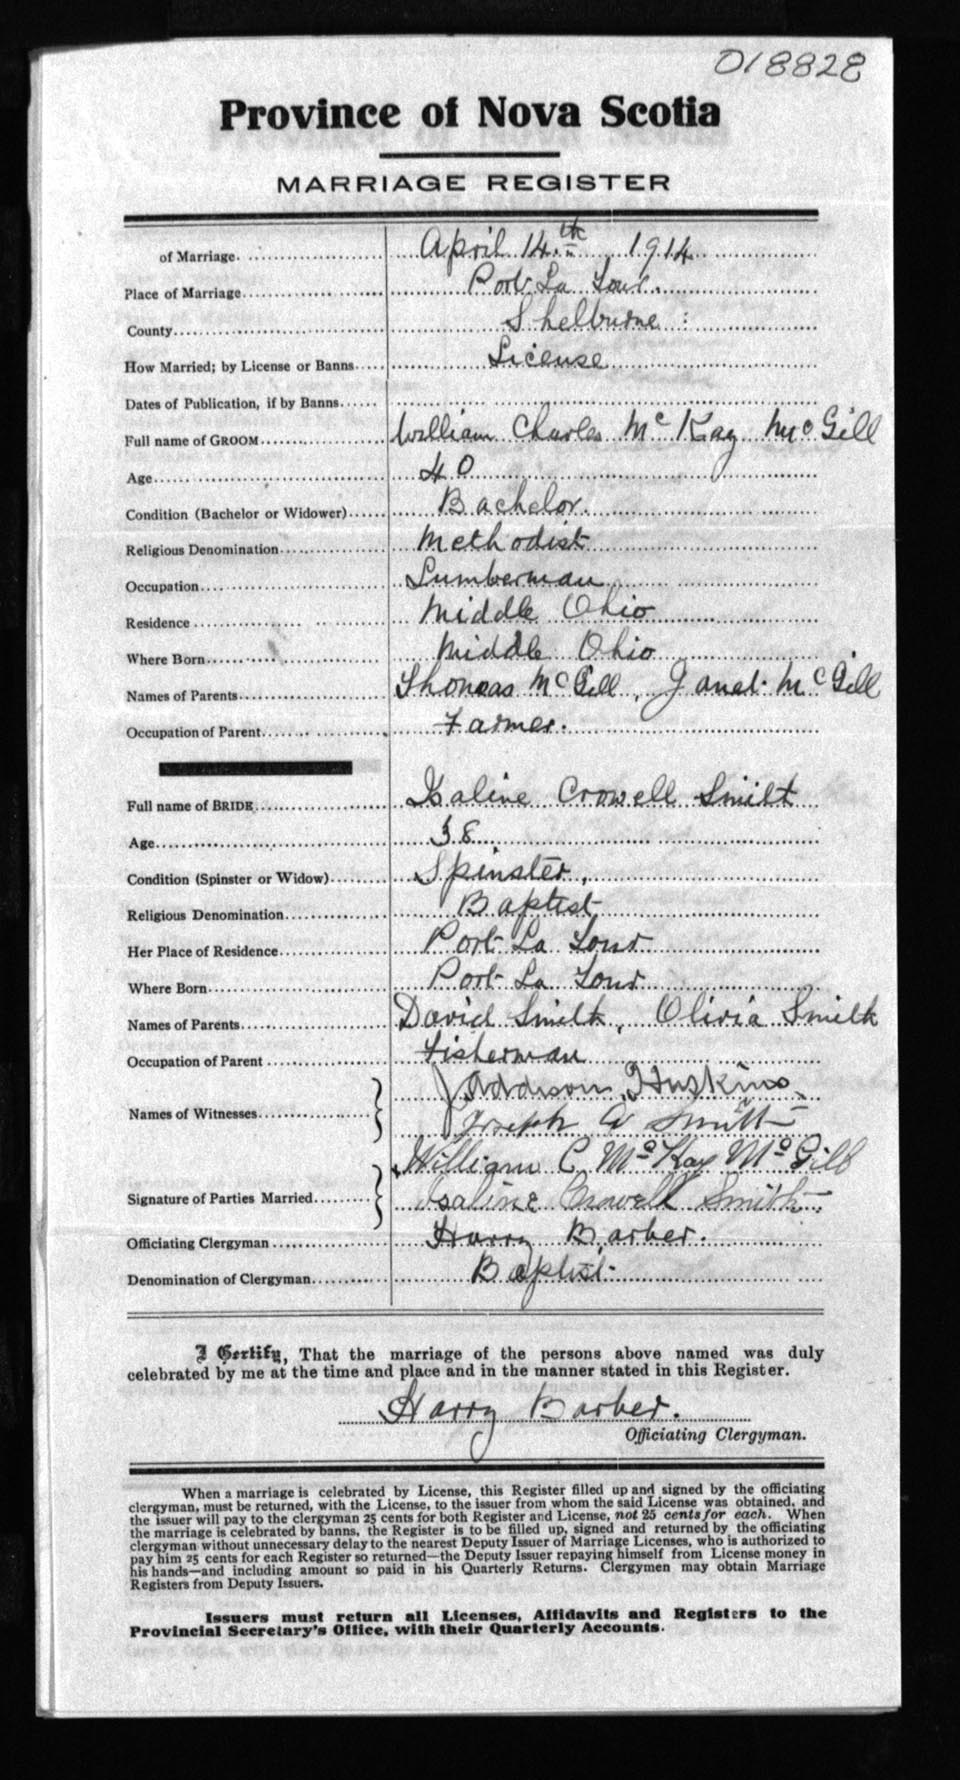 018828
Province of Nova Scotia
MARRIAGE REGISTER
of Marriage. April 14.th 1914
Place of Marriage Port La Tour.
County Shelburne :
How Married; by License or Banns License
Dates of Publication, if by Banns
Full name of GROOM William Charles McKay McGill
Age 40
Condition (Bachelor or Widower) Bachelor.
Religious Denomination Methodist
Occupation Lumberman
Residence Middle Ohio
Where Born Middle Ohio
Names of Parents Thomas McGill, Janet McGill
Occupation of Parent Farmer.
Full name of BRIDE Isaline Crowell Smith
Age 38
Condition (Spinster or Widow) Spinster,
Religious Denomination Baptist
Her Place of Residence Port La Tour
Where Born Port La Tour
Names of Parents David Smith, Olivia Smith
Occupation of Parent Fisherman
Names of Witnesses J Addison Huskins
Joseph A Smith
Signature of Parties Married William C. McKay McGill
Isaline Crowell Smith
Officiating Clergyman Harry Barber.
Denomination of Clergyman Baptist
I Certify, That the marriage of the persons above named was duly
celebrated by me at the time and place and in the manner stated in this Register.
Harry Barber.
Officiating Clergyman.
When a marriage is celebrated by License, this Register filled up and signed by the officiating
clergyman, must be returned, with the License, to the issuer from whom the said License was obtained, and
the issuer will pay to the clergyman 25 cents for both Register and License, not 25 cents for each. When
the marriage is celebrated by banns, the Register is to be filled up, signed and returned by the officiating
clergyman without unnecessary delay to the nearest Deputy Issuer of Marriage Licenses, who is authorized to
pay him 25 cents for each Register so returned—the Deputy Issuer repaying himself from License money in
his hands—and including amount so paid in his Quarterly Returns. Clergymen may obtain Marriage
Registers from Deputy Issuers.
Issuers must return all Licenses, Affidavits and Registers to the
Provincial Secretary's Office, with their Quarterly Accounts.